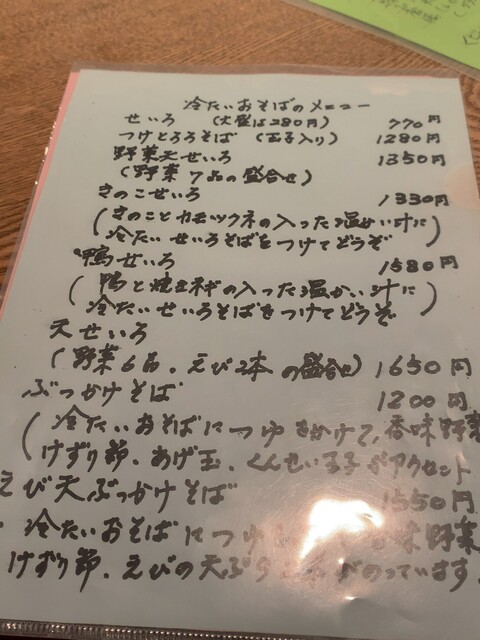 冷たいおそばのメニュー
せいろ (大盛は280円) 770円
つけとろろそば (玉子入り) 1280円
野菜天せいろ 1350円
(野菜7品の盛合せ)
きのこせいろ 1330円
(きのことカモツクネの入った温かい汁に
冷たいせいろそばをつけてどうぞ)
鴨せいろ 1580円
(鴨と焼きネギの入った温かい汁に
冷たいせいろそばをつけてどうぞ)
天せいろ
(野菜6品.えび2本の盛合せ) 1650円
ぶっかけそば 1200円
(冷たいおそばにつゆをかけて,香味野菜
けずり節.あげ玉.くんせい玉子がアクセント
えび天ぶっかけそば 1550円
冷たいおそばにつゆ 味野菜
けずり節.えびの天ぷら がのっています.